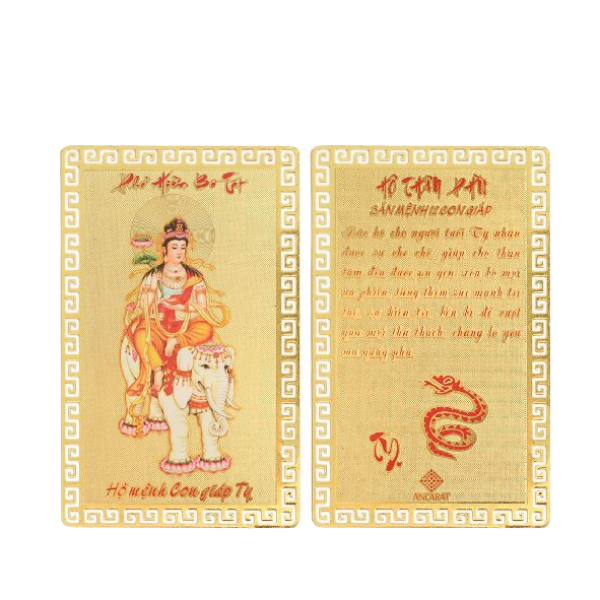 Phổ Hiền Bồ Tát
Hộ mệnh Con giáp Tỵ
HỘ THÂN PHÙ
BẢN MỆNH 12 CON GIÁP
Bảo hộ cho người tuổi Tỵ nhận
được sự che chở, giúp cho thân
tâm đều được an yên, xóa bỏ mọi
ưu phiền, tăng thêm sức mạnh tri
tuệ, sự kiên trì, bền bỉ để vượt
qua mọi thử thách, chẳng lo yêu
ma quấy phá.
Tỵ
ANCARAT